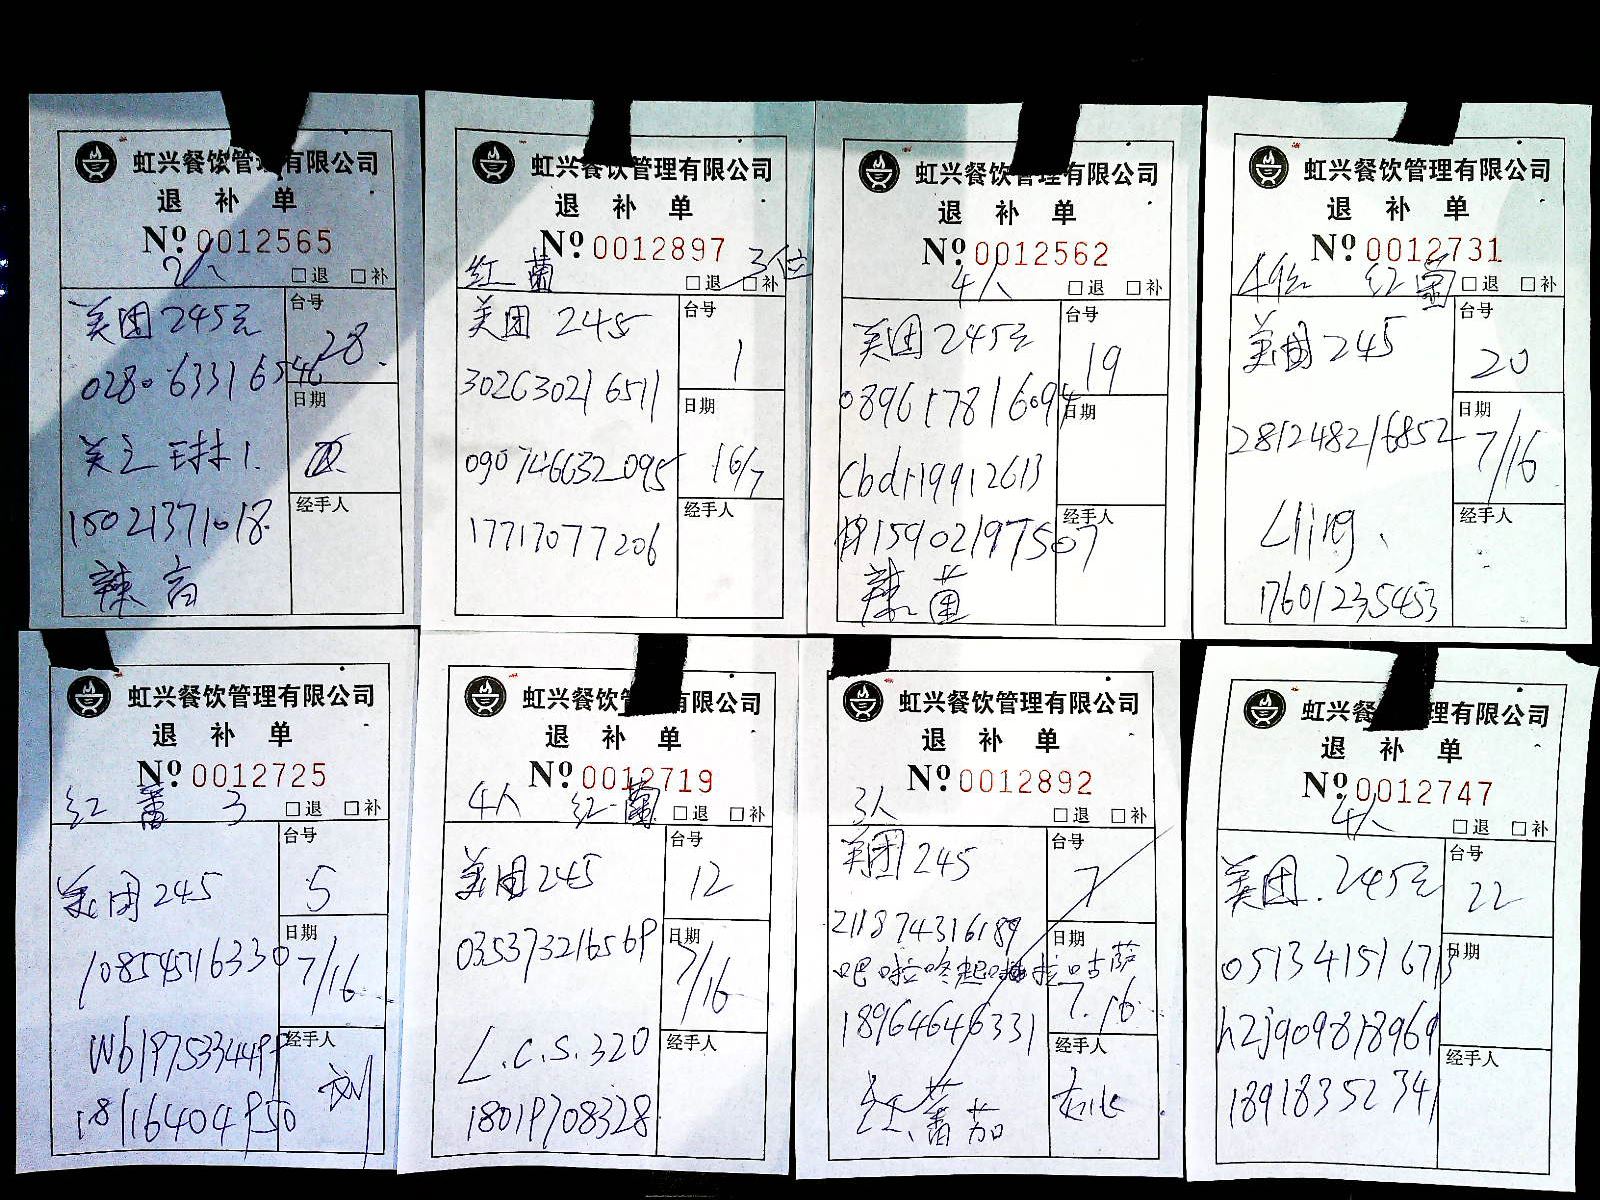 虹兴餐饮管理有限公司
退补单
No 0012565
2人
□退 □补
美团245元
台号
28
028063316546
日期
15021371018
经手人
辣
虹兴餐饮管理有限公司
退补单
No 0012897
红 3位
□退 □补
美团 245
台号
1
302630216511
日期
16/7
090746632095
经手人
17717077206
虹兴餐饮管理有限公司
退补单
No 0012562
4人
□退 □补
美团245元
台号
19
089617816094
日期
cbdr19912613
经手人
15902197507
辣
虹兴餐饮管理有限公司
退补单
No 0012731
红
□退 □补
美团245
台号
20
281248216852
日期
7/16
经手人
17601235453
虹兴餐饮管理有限公司
退补单
No 0012725
红 3
□退 □补
美团245
台号
5
108545716330
日期
7/16
wb1975334499
经手人
刘
18116404950
虹兴餐饮管理有限公司
退补单
No 0012719
4人 红
□退 □补
美团245
台号
12
035373216569
日期
7/16
L.c.s.320
经手人
18019708328
虹兴餐饮管理有限公司
退补单
No 0012892
3人
□退 □补
美团 245
台号
7
211874316189
日期
7.16
18964646331
经手人
红 蕃茄
虹兴餐饮管理有限公司
退补单
No 0012747
4人
□退 □补
美团.245元
台号
22
051341516713
日期
hzjq09818969
经手人
18918352341